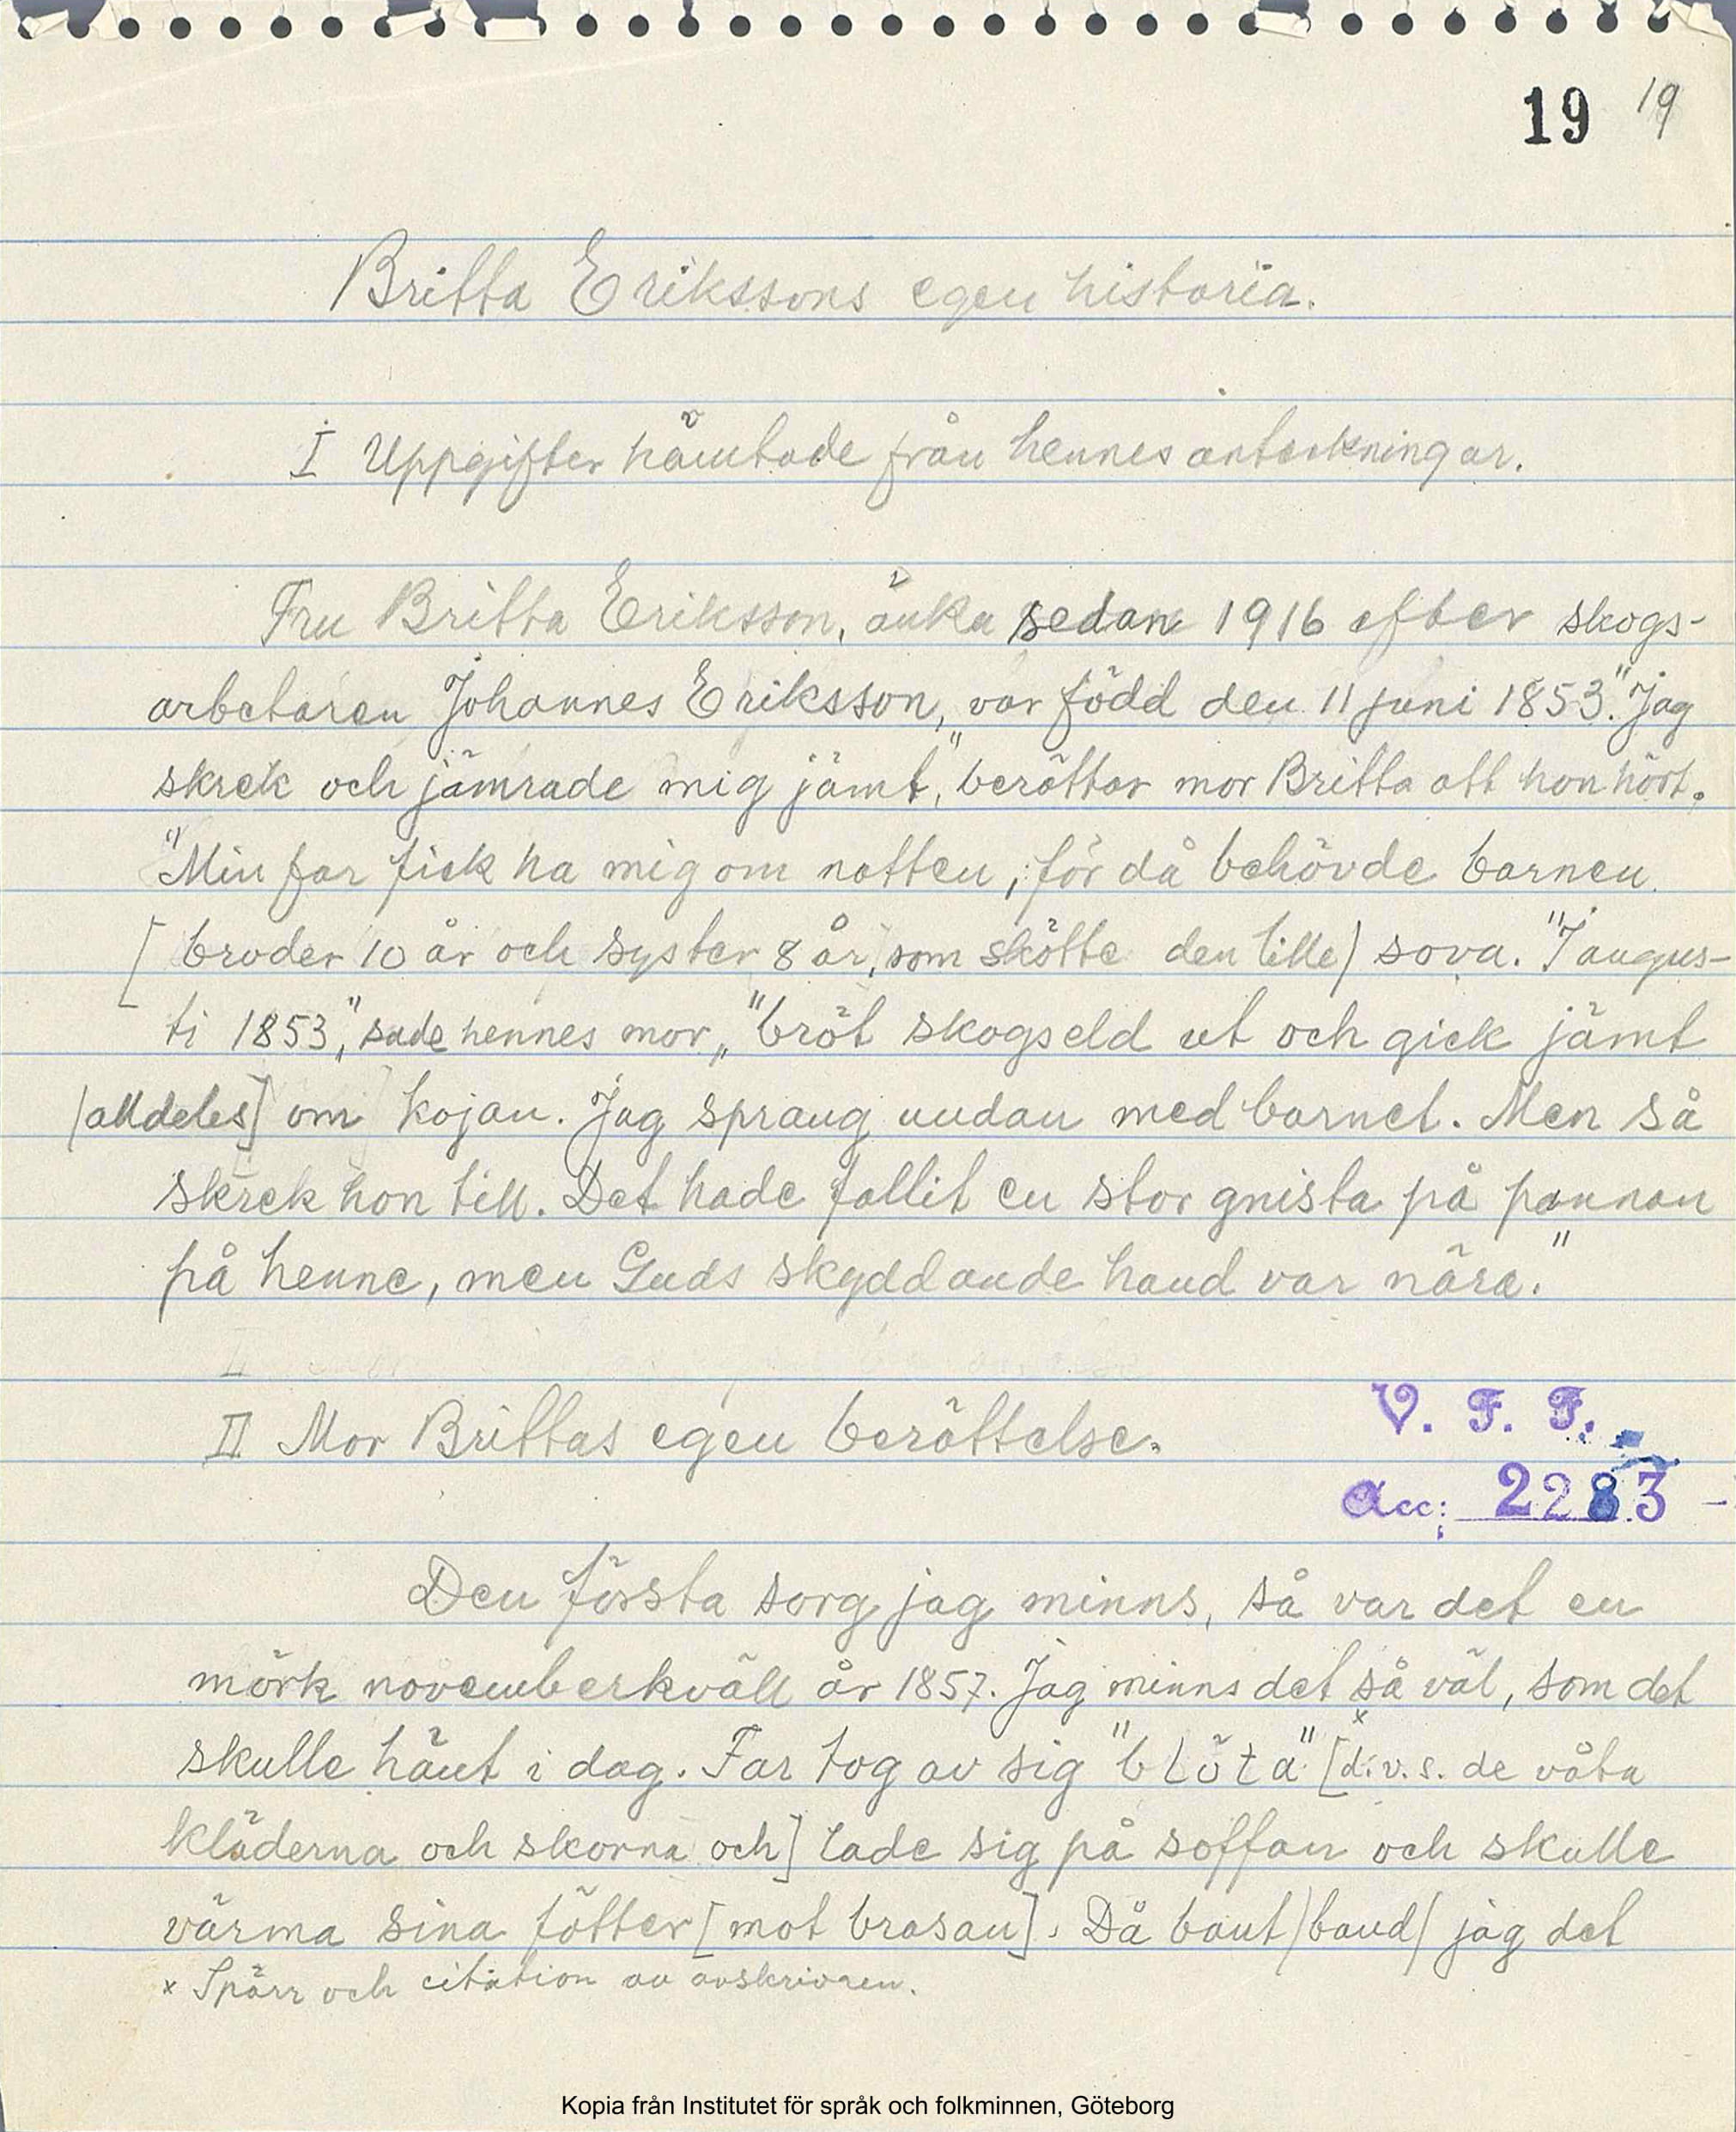 19 19
Britta Erikssons egen historia.
I Uppgifter hämtade från hennes anteckningar.
Fru Britta Eriksson, änka sedan 1916 efter skogs-
arbetaren Johannes Eriksson, var född den 11 juni 1853. "Jag
skrek och jämrade mig jämt," berättar mor Britta att hon hört.
"Min far fick ha mig om natten, för då behövde barnen
[broder 10 år och syster 8 år, som skötte den lille) sova. "I augus-
ti 1853," sade hennes mor, "bröt skogseld ut och gick jämt
[alldeles] om kojan. Jag sprang undan med barnet. Men så
skrek hon till. Det hade fallit en stor gnista på pannan
på henne, men Guds skyddande hand var nära."
II Mor Brittas egen berättelse.
V. F. F.
Acc: 2283 -
Den första sorg jag minns, så var det en
mörk novemberkväll år 1857. Jag minns det så väl, som det
skulle hänt i dag. Far tog av sig "blöta"x [d.v.s. de våta
kläderna och skorna och] lade sig på soffan och skulle
värma sina fötter [mot brasan]. Då bant /band/ jag det
x Spärr och citation av avskrivaren.
Kopia från Institutet för språk och folkminnen, Göteborg